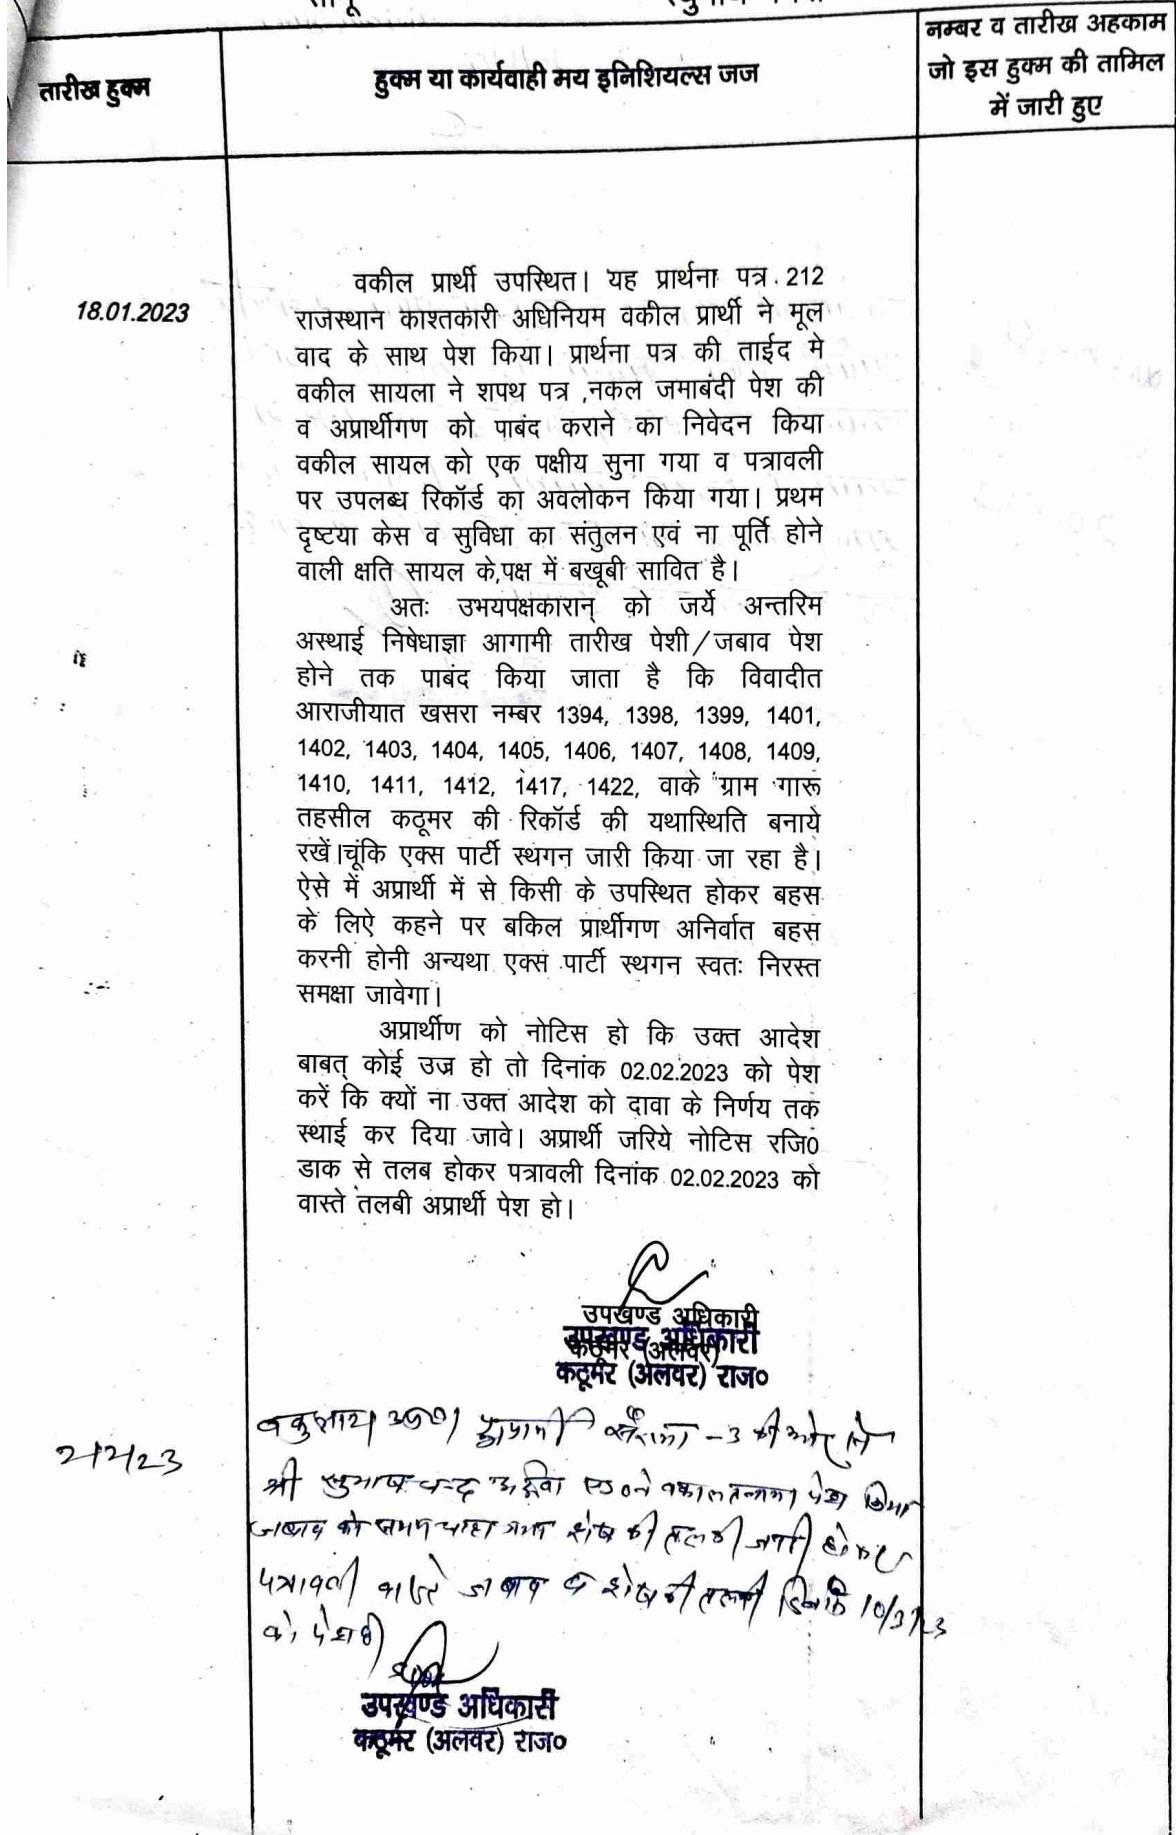 तारीख हुक्म
हुक्म या कार्यवाही मय इनिशियल्स जज
नम्बर व तारीख अहकाम
जो इस हुक्म की तामिल
में जारी हुए
18.01.2023
वकील प्रार्थी उपस्थित। यह प्रार्थना पत्र 212
राजस्थान काश्तकारी अधिनियम वकील प्रार्थी ने मूल
वाद के साथ पेश किया। प्रार्थना पत्र की ताईद मे
वकील सायला ने शपथ पत्र ,नकल जमाबंदी पेश की
व अप्रार्थीगण को पाबंद कराने का निवेदन किया
वकील सायल को एक पक्षीय सुना गया व पत्रावली
पर उपलब्ध रिकॉर्ड का अवलोकन किया गया। प्रथम
दृष्टया केस व सुविधा का संतुलन एवं ना पूर्ति होने
वाली क्षति सायल के,पक्ष में बखूबी सावित है।
अतः उभयपक्षकारान् को जर्ये अन्तरिम
अस्थाई निषेधाज्ञा आगामी तारीख पेशी/जबाव पेश
होने तक पाबंद किया जाता है कि विवादीत
आराजीयात खसरा नम्बर 1394, 1398, 1399, 1401,
1402, 1403, 1404, 1405, 1406, 1407, 1408, 1409,
1410, 1411, 1412, 1417, 1422, वाके ग्राम गारू
तहसील कठूमर की रिकॉर्ड की यथास्थिति बनाये
रखें।चूंकि एक्स पार्टी स्थगन जारी किया जा रहा है।
ऐसे में अप्रार्थी में से किसी के उपस्थित होकर बहस
के लिऐ कहने पर बकिल प्रार्थीगण अनिर्वात बहस
करनी होनी अन्यथा एक्स पार्टी स्थगन स्वतः निरस्त
समक्षा जावेगा।
अप्रार्थीण को नोटिस हो कि उक्त आदेश
बाबत् कोई उज्र हो तो दिनांक 02.02.2023 को पेश
करें कि क्यों ना उक्त आदेश को दावा के निर्णय तक
स्थाई कर दिया जावे। अप्रार्थी जरिये नोटिस रजि०
डाक से तलब होकर पत्रावली दिनांक 02.02.2023 को
वास्ते तलबी अप्रार्थी पेश हो।
उपखण्ड अधिकारी
कठूमर (अलवर)
उपखण्ड अधिकारी
कठूमर (अलवर) राज०
2/2/23
-3 की ओर से
श्री सुभाष चन्द ने वकालतनामा पेश किया
जबाव को समय चाहा गया शेष की तलबी जारी होकर
पत्रावली वास्ते जबाव व शेष की तलबी दिनांक 10/3/23
को पेश हो
उपखण्ड अधिकारी
कठूमर (अलवर) राज०